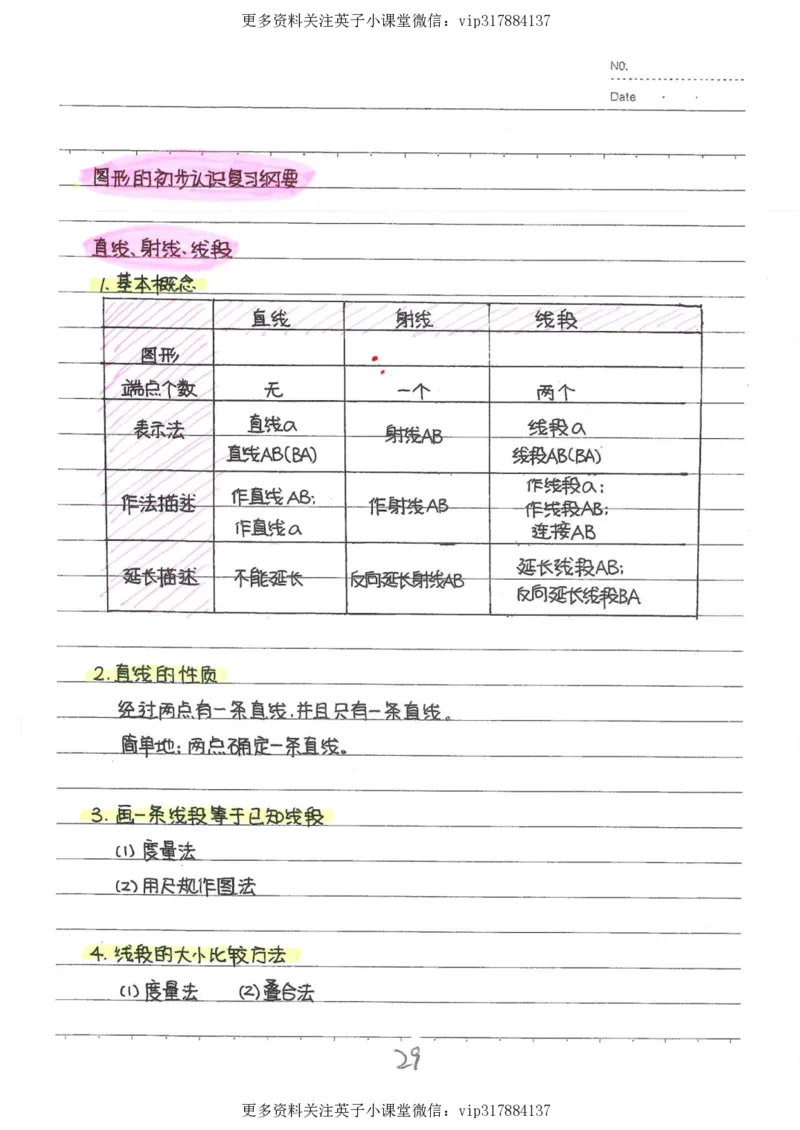 更多资料关注英子小课堂微信：vip317884137
NO.
Date
图形的初步认识复习纲要
直线、射线、线段
1.基本概念
直线 射线 线段
图形
端点个数 无 一个 两个
表示法 直线a 直线AB(BA) 射线AB 线段a 线段AB(BA)
作法描述 作直线AB; 作直线a 作射线AB 作线段a; 作线段AB; 连接AB
延长描述 不能延长 反向延长射线AB 延长线段AB; 反向延长线段BA
2.直线的性质
经过两点有一条直线,并且只有一条直线。
简单地:两点确定一条直线。
3.画一条线段等于已知线段
(1)度量法
(2)用尺规作图法
4.线段的大小比较方法
(1)度量法 (2)叠合法
29
更多资料关注英子小课堂微信：vip317884137